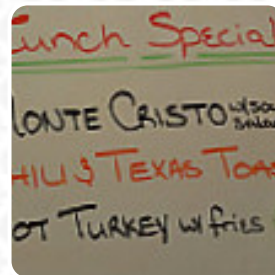 Lunch Special
MONTE CRISTO w/ SOUP
HILI & TEXAS TOAS
OT TURKEY w/ fries